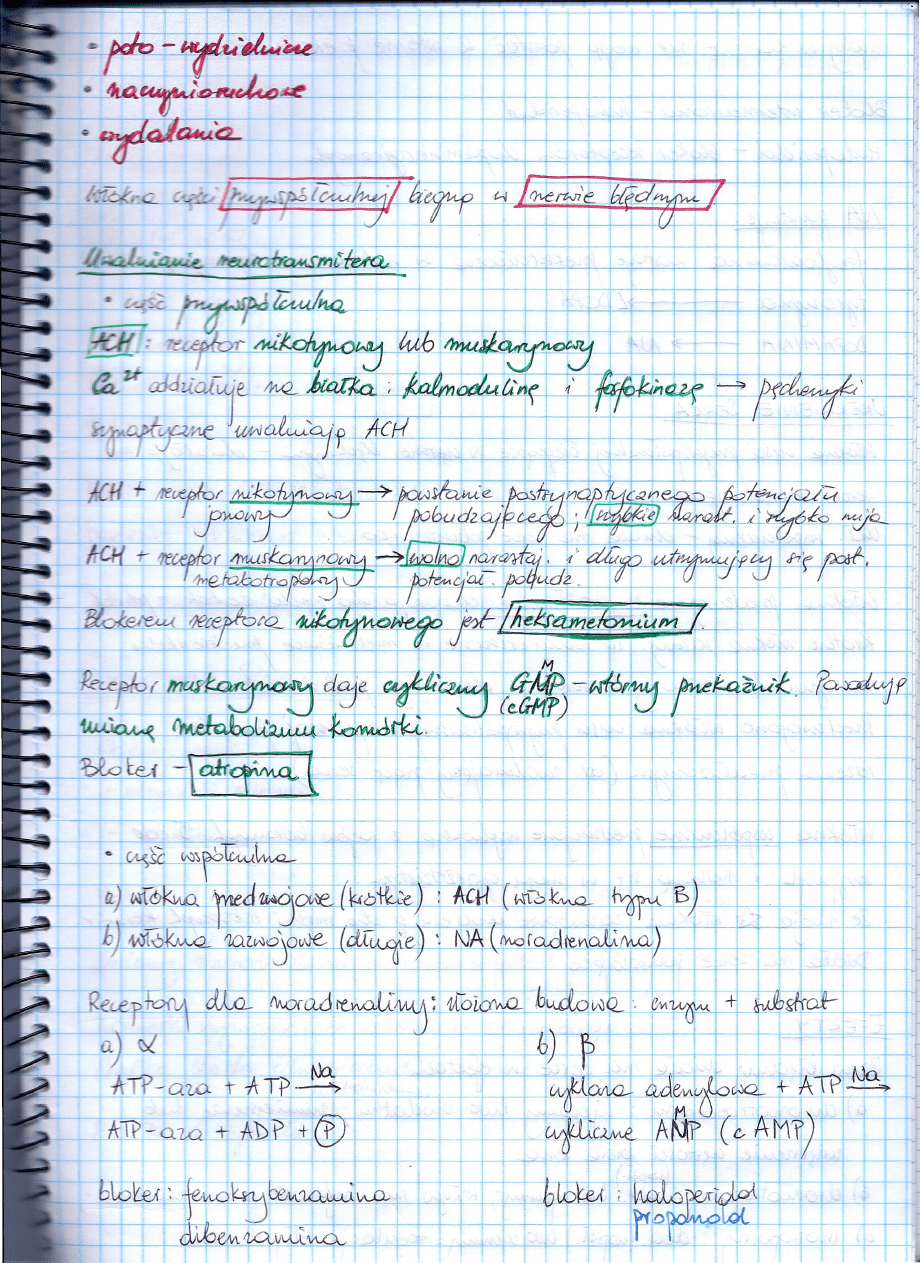 • poto-wydzielnicze
• naczynioruchowe
• wydalania
Włókna części przywspółczulnej biegną w nerwie błędnym
Uwalnianie neurotransmitera
• część przywspółczulna
ACH : receptor nikotynowy lub muskarynowy
Ca²⁺ oddziałuje na białka : kalmodulinę i fosfokinazę → pęcherzyki
synaptyczne uwalniają ACH
ACH + receptor nikotynowy → powstanie postsynaptycznego potencjału
jonowy pobudzającego ; szybkie narast. i szybko mija
ACH + receptor muskarynowy → wolno narastaj. i długo utrzymujący się post.
metabotropowy potencjał. pobudz.
Blokerem receptora nikotynowego jest heksametonium.
Receptor muskarynowy daje cykliczny GMP - wtórny przekaźnik. Powoduje
(cGMP)
zmianę metabolizmu komórki.
Bloker - atropina
• część współczulna
a) włókna przedzwojowe (krótkie) : ACH (włókna typu B)
b) włókna zazwojowe (długie) : NA (noradrenalina)
Receptory dla noradrenaliny : złożona budowa : enzym + substrat
a) α b) β
ATP-aza + ATP —Na→ cyklaza adenylowa + ATP —Na→
ATP-aza + ADP + P cykliczne AMP (cAMP)
bloker : fenoksybenzamina bloker : haloperidol
dibenzamina propanolol